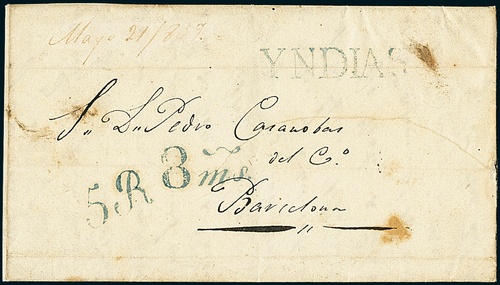 Mayo 29/837.
YNDIAS
S.n D.n Pedro Casanobas
del C.o
5R 8 ms
Barcelona